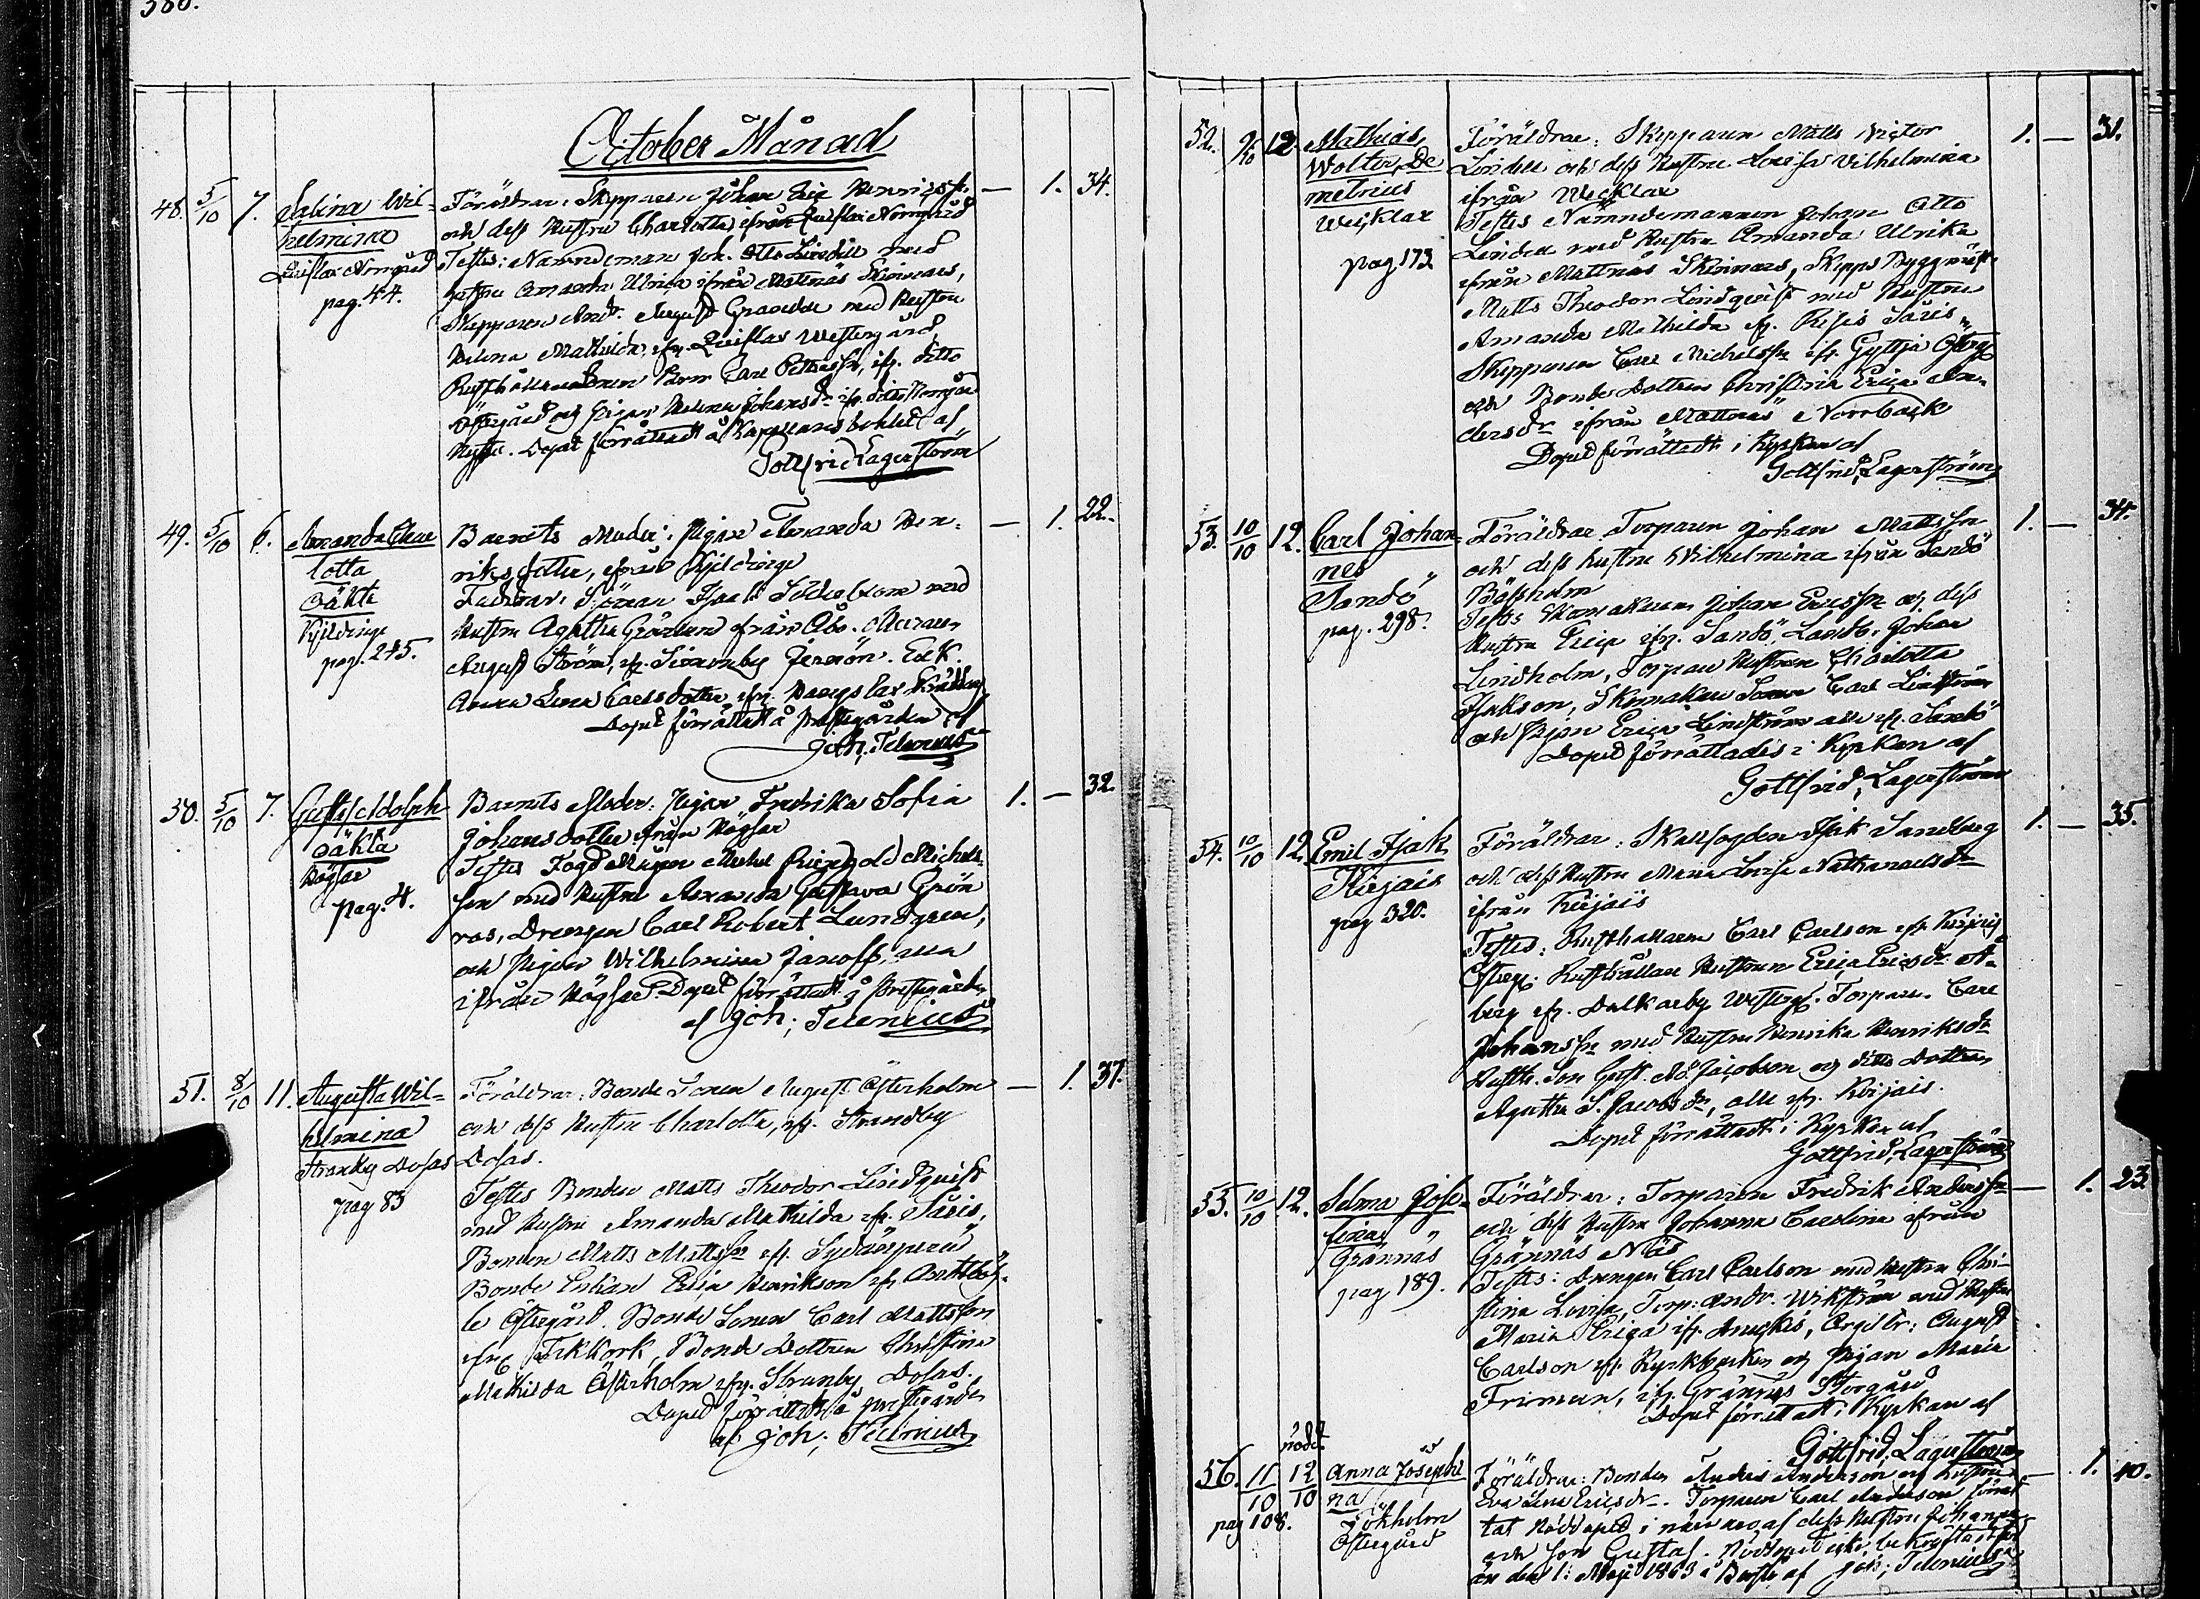 380.
October Månad
48. 5/10 7. Salina Wil-
helmina
Norrgård
pag. 44.
Föräldrar: Skepparen Johan Eric Henrigss.
och dess Hustru Charlotta ifrån Norrgård
Testes: Nämndeman Joh. Otto Lindell med
hustru Amanda Ulrica ifrån Mattnäs Skinnars,
Skepparen And. August Granlund med Hustru
Helena Mathilda, ifr. Westergård
Carl Pettersson, ifr. ditto
Östergård och Pigan Helena Johansdr ifr. ditto Norrgård
Dopet förrättadt å Kapellansbohlet af
Gottfrid Lagerström
— 1. 34.
49. 5/10 6. Amanda Char
lotta
oäkta
Kjeldinge
pag. 245.
Barnets Moder: Pigan Amanda Hen-
riksdotter, ifrån Kjeldinge
Faddrar: Sjöman Isaak Söderblom med
Hustru Agatha Grönlund ifrån Åbo.
August Ström, ifr. Simonby Jermön. Enk.
Anna Lena Carlsdotter, ifr.
Dopet förrättadt å Prestegården af
Joh. Telenius
— 1. 22.
50. 5/10 7. Gustaf Adolph
oäkta
Högsar
pag. 4.
Barnets Moder: Pigan Fredrika Sofia
Johansdotter ifrån Högsar
Testes Michel Reinhold Michels-
son med Hustru Amanda Gustava Grön
roos, Drengen Carl Robert Lundgren,
och Pigan Wilhelmina
ifrån Högsar. Dopet förrättadt å Prestegården
af Joh: Telenius
1. — 32.
51. 8/10 11. Augusta Wil-
helmina
Strandby Dosas
pag 83
Föräldrar: Bonde Sonen August Österholm
och dess Hustru Charlotta, ifr. Strandby
Dosas.
Testes Bonden Matts Theodor Lindqvist
med Hustru Amanda Mathilda ifr. Säris,
Bonden Matts Mattsson ifr.
Bonde Enkan Erica Henrikson ifr. Antböh-
le Östergård. Bonde Sonen Carl Mattsson
ifrå Bonde Dottren Christina
Mathilda Österholm ifr. Stranby Dosas.
Dopet förrättadt å prestegården
af Joh; Telenius
— 1. 37.
52. 9/10 12. Mathias,
Wolter, De
metrius
Wejklax
pag 173
Föräldrar: Skepparen Matts Victor
Lindell och dess Hustru Lovisa Vilhelmina
ifrån Wejklax
Testes Nämndemannen Johan Otto
Lindell med Hustru Amanda Ulrika
ifrån Mattnäs Skinnars, Skepps Byggmäst.
Matts Theodor Lindqvist med Hustru
Amanda Mathilda ifr. Säris,
Skepparen Carl Michelsson ifr. Gyttja
och Bonde Dottren Christina Erica An-
dersdr ifrån Mattnäs Norrback
Dopet förrättadt i Kyrkan af
Gottfrid, Lagerström
1. — 31.
53. 10/10 12. Carl Johan-
nes
Sandö
pag. 298.
Föräldrar Torparen Johan Mattsson
och dess hustru Wilhelmina ifrån Sandö
Båtsholm
Testes Skomakaren Johan Ericsson och dess
Hustru Erica ifr. Sandö, Landb. Johan
Lindholm, Torpare Hustrun Charlotta
Isakson, Skomakare Sonen Carl Lindström
och Pigan Erica Lindström alla ifr. Sandö
Dopet förrättades i Kyrkan af
Gottfrid, Lagerström
1. — 34.
54. 10/10 12. Emil Isak
Kirjais
pag 320.
Föräldrar: Skallfogden Isak Sandberg
och dess Hustru Maria Lovisa Nathanaelsdr
ifrån Kirjais
Testes: Rusthållaren Carl Carlson ifr. Kirjais
Österg. Rusthållare Hustrun Erica Ericsdr Å-
berg ifr. Dalkarby Westerg. Torparen Carl
Johansson med Hustru Henrika Henriksdr
Rusth. Son Gust. Ad. Jacobson och ditto Dottren
Agatha S. Jacobsdr, alla ifr. Kirjais.
Dopet förrättadt i Kyrkan af
Gottfrid, Lagerström
1. — 35.
55. 10/10 12. Selma Jose-
fina
Grännäs
pag 189.
Föräldrar: Torparen Fredrik Andersson
och dess Hustru Johanna Carolina ifrån
Grännäs Näs
Testes: Drengen Carl Carlson med Hustru Chri-
stina Lovisa, Torp: Andr. Wikström med Hustru
Maria Erica ifr. August
Carlson ifr. Kyrkbacken och Pigan Maria
Friman, ifr. Grännäs Storgård
Dopet förrättadt i Kyrkan af
Gottfrid, Lagerström
— 1. 23.
nöd d.
56. 11/10 12/10 Anna Josephi
na
Sökholm
Östergård
pag 108.
Föräldrar: Bonden Anders Anderson och Hustru
Eva Lena Ericsdr. Torparen Carl Anderson förrät
tat Nöddopet i närvaro af dess Hustru Johanna
och son Gustaf.
den 1: Maji 1863 af Joh; Telenius
— 1. 40.